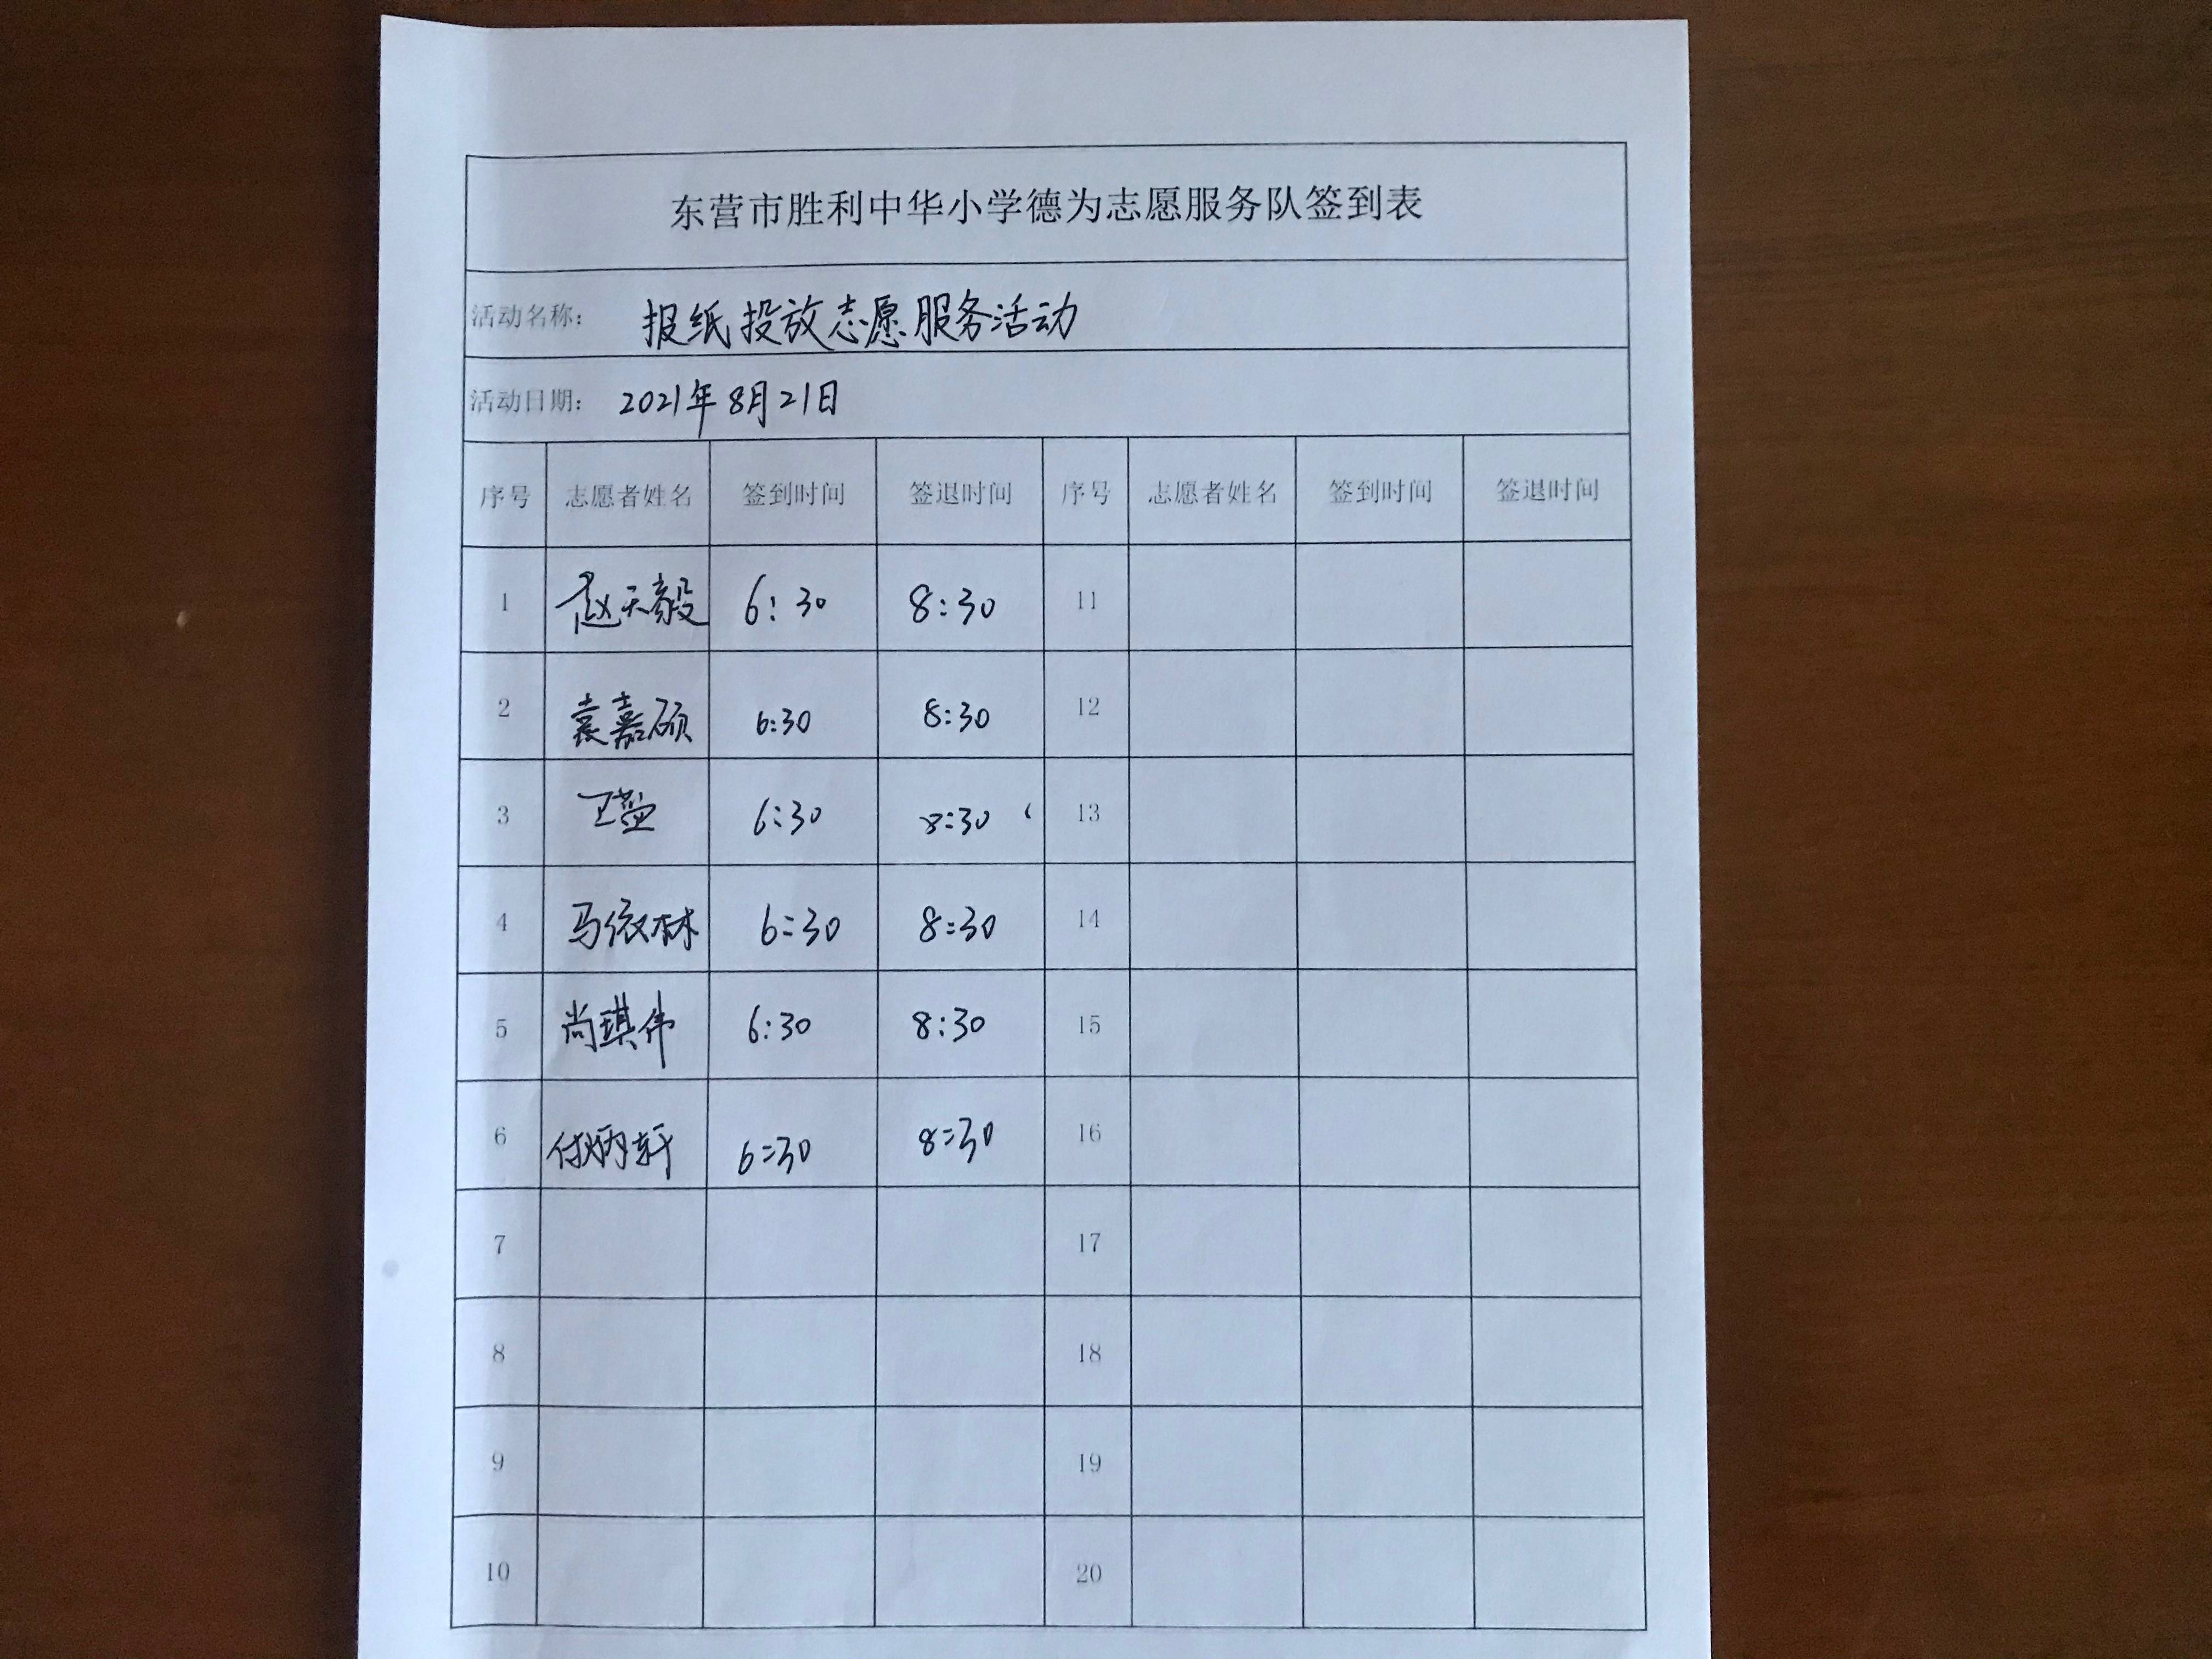 东营市胜利中华小学德为志愿服务队签到表
活动名称: 报纸投放志愿服务活动
活动日期: 2021年8月21日
序号 志愿者姓名 签到时间 签退时间 序号 志愿者姓名 签到时间 签退时间
1 赵天毅 6:30 8:30 11
2 袁嘉硕 6:30 8:30 12
3 6:30 8:30 13
4 马依林 6:30 8:30 14
5 尚琪伟 6:30 8:30 15
6 付炳轩 6:30 8:30 16
7 17
8 18
9 19
10 20